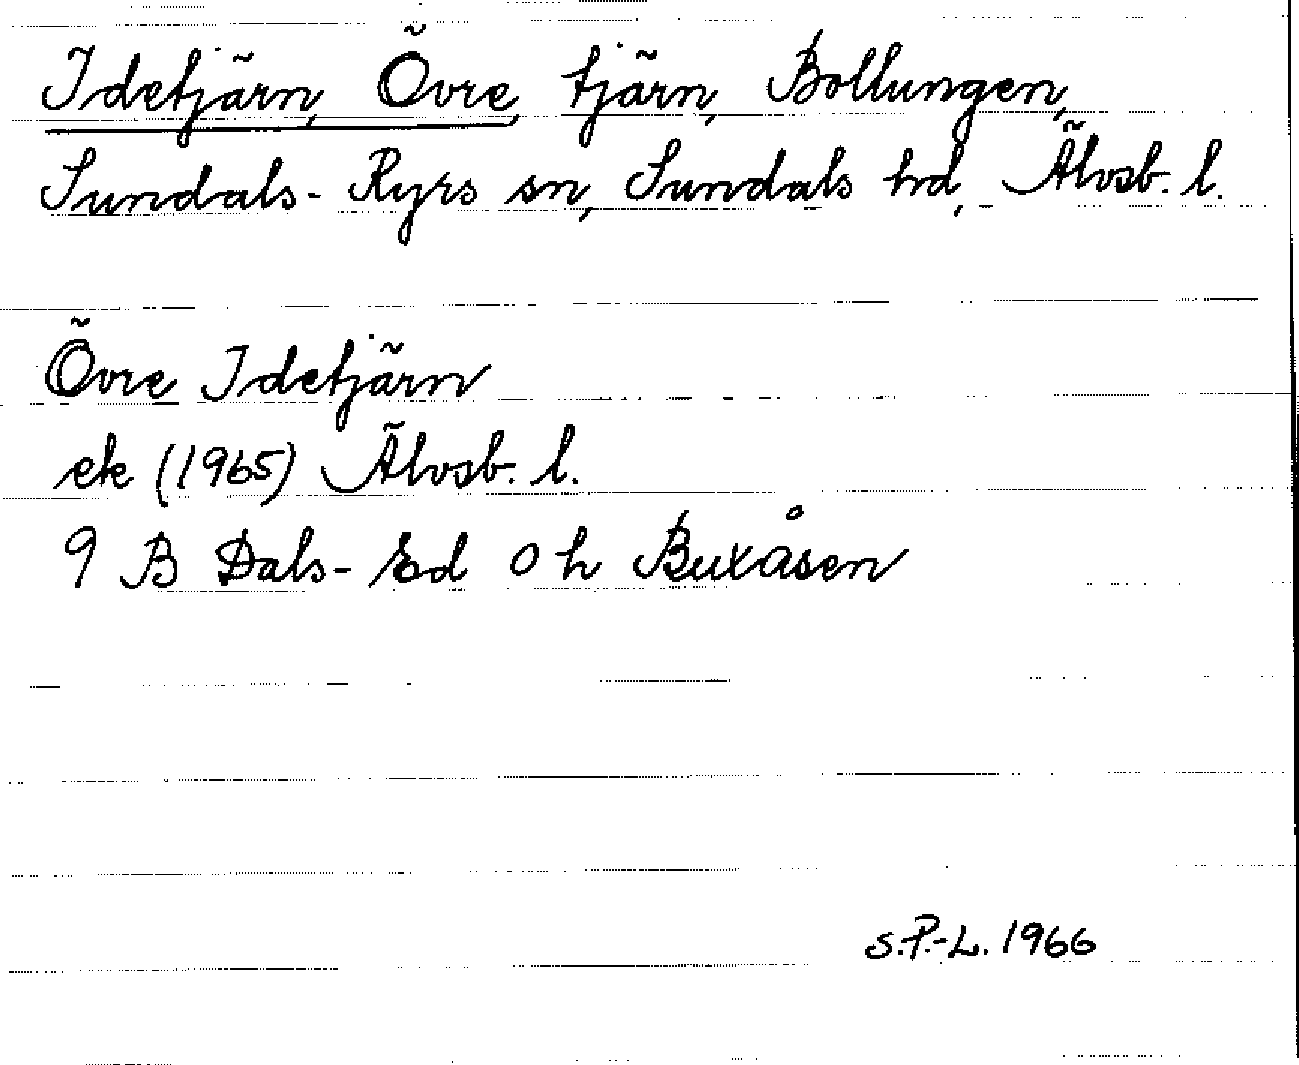 Idetjärn, Övre, tjärn, Bollungen,
Sundals-Ryrs sn, Sundals hd, Älvsb. l.
Övre Idetjärn
ek (1965) Älvsb. l.
9 B Dals-Ed 0 h Buxåsen
S.P.-L. 1966